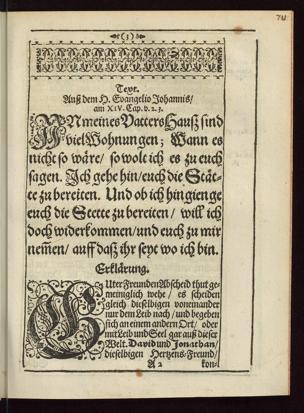 (3)
Text.
Auß dem H. Evangelio Johannis/
am XIV. Cap. v. 2. 3.
IN meines Vatters Hauß sind
viel Wohnungen; Wann es
nicht so wäre/ so wolt ich es zu euch
sagen. Ich gehe hin/ euch die Stät-
te zu bereiten. Und ob ich hingienge
euch die Stette zu bereiten/ will ich
doch widerkommen/ und euch zu mir
nem̃en/ auff daß ihr seyt wo ich bin.
Erklärung.
GUter Freunden Abscheid thut ge-
meiniglich wehe/ es scheiden
gleich dieselbigen voneinander
nur dem Leib nach/ und begeben
sich an einem andern Ort/ oder
mit Leib und Seel gar auß dieser
Welt. David und Jonathan/
dieselbigen Hertzens-Freund/
A 2 kon-